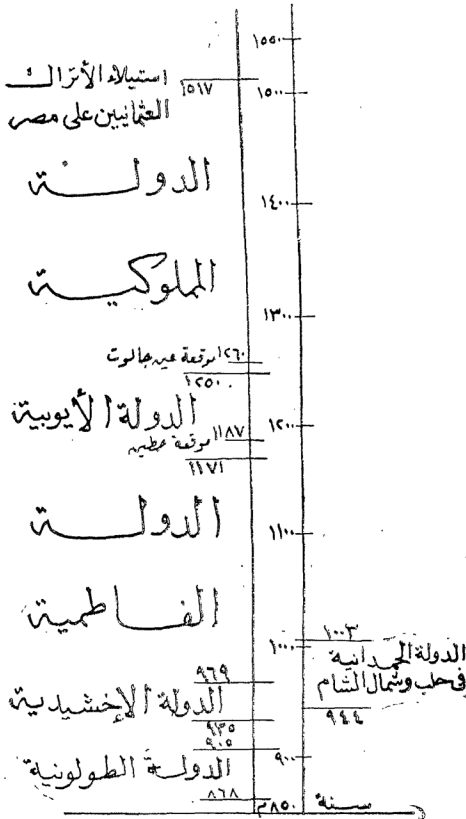 ١٥٥٠
استيلاء الأتراك
١٥١٧
العثمانيين على مصر
١٥٠٠
الدولة
١٤٠٠
المملوكية
١٣٠٠
١٢٦٠ موقعة عين جالوت
١٢٥٠
الدولة الأيوبية
١٢٠٠
١١٨٧ موقعة حطين
١١٧١
الدولة
١١٠٠
الفاطمية
١٠٠٣
١٠٠٠
الدولة الحمدانية
فى حلب وشمال الشام
٩٤٤
٩٦٩
الدولة الإخشيدية
٩٣٥
٩٠٥
٩٠٠
الدولة الطولونية
٨٦٨
٨٥٠م
سنة